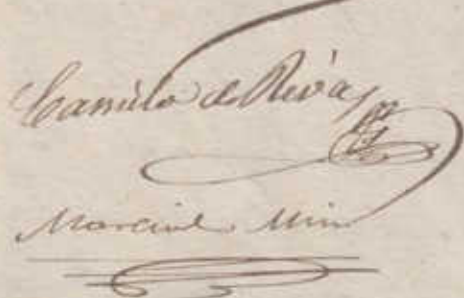 Camilo de Rivas
Marcial Mir